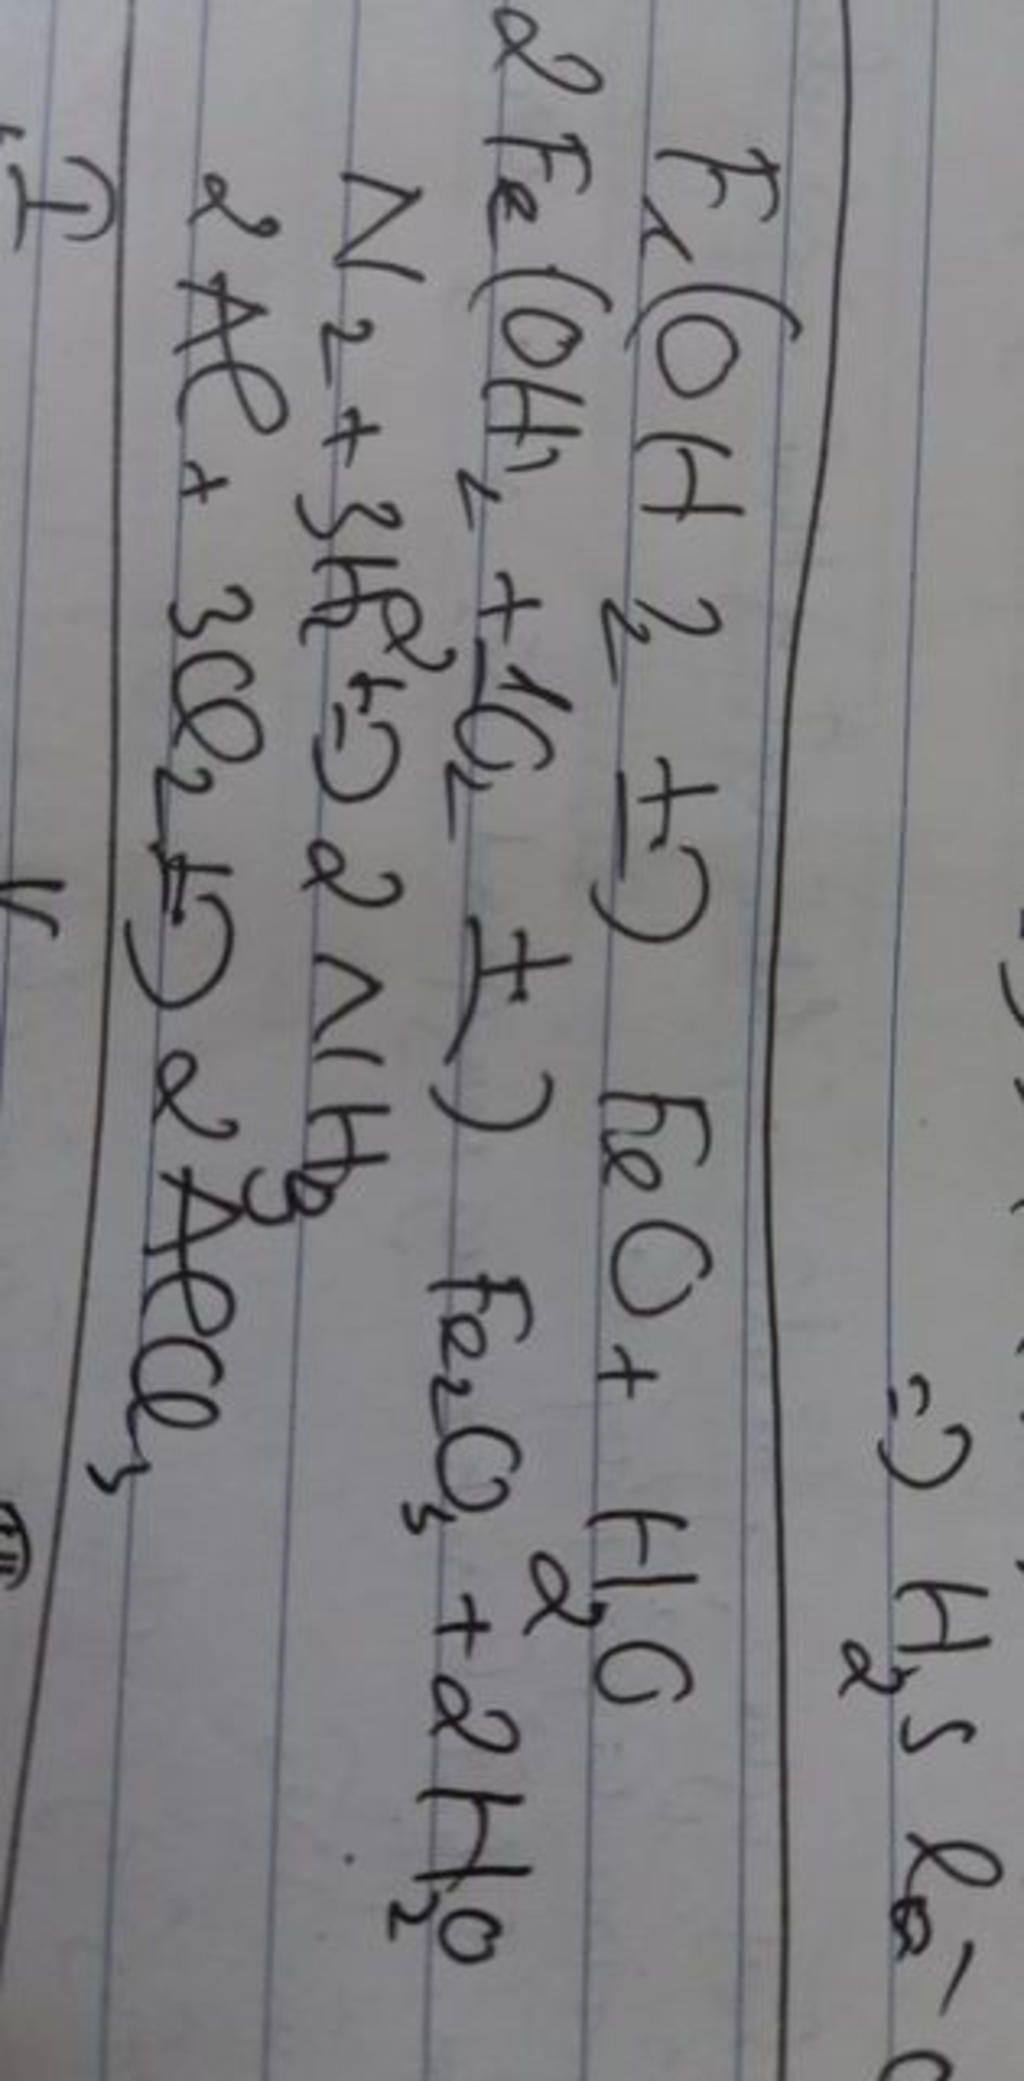 => H2S
Fe(OH)2 t=> FeO + H2O
2Fe(OH)2 + 1O2 t=> Fe2O3 + 2H2O
N2 + 3H2 t=> 2NH3
2Al + 3Cl2 t=> 2AlCl3